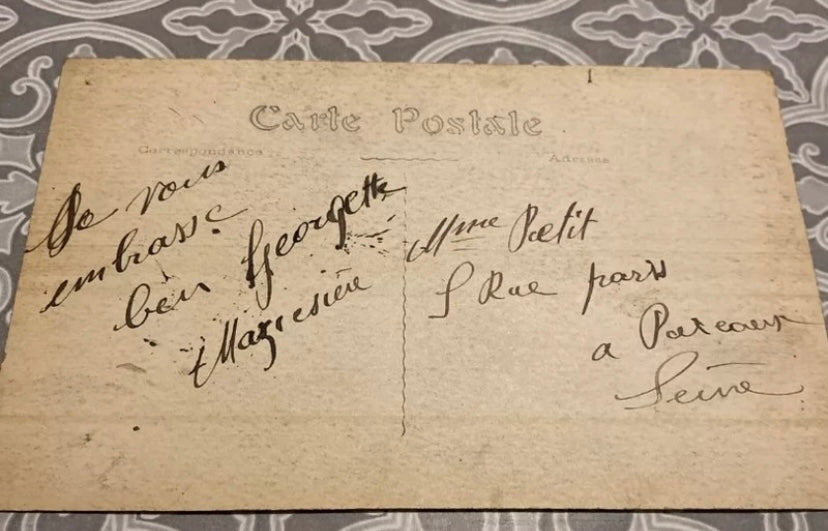 Carte Postale
Correspondance
Adresse
Je vous
embrasse
bien Georgette
Mme Petit
5 Rue paris
a Puteaux
Seine